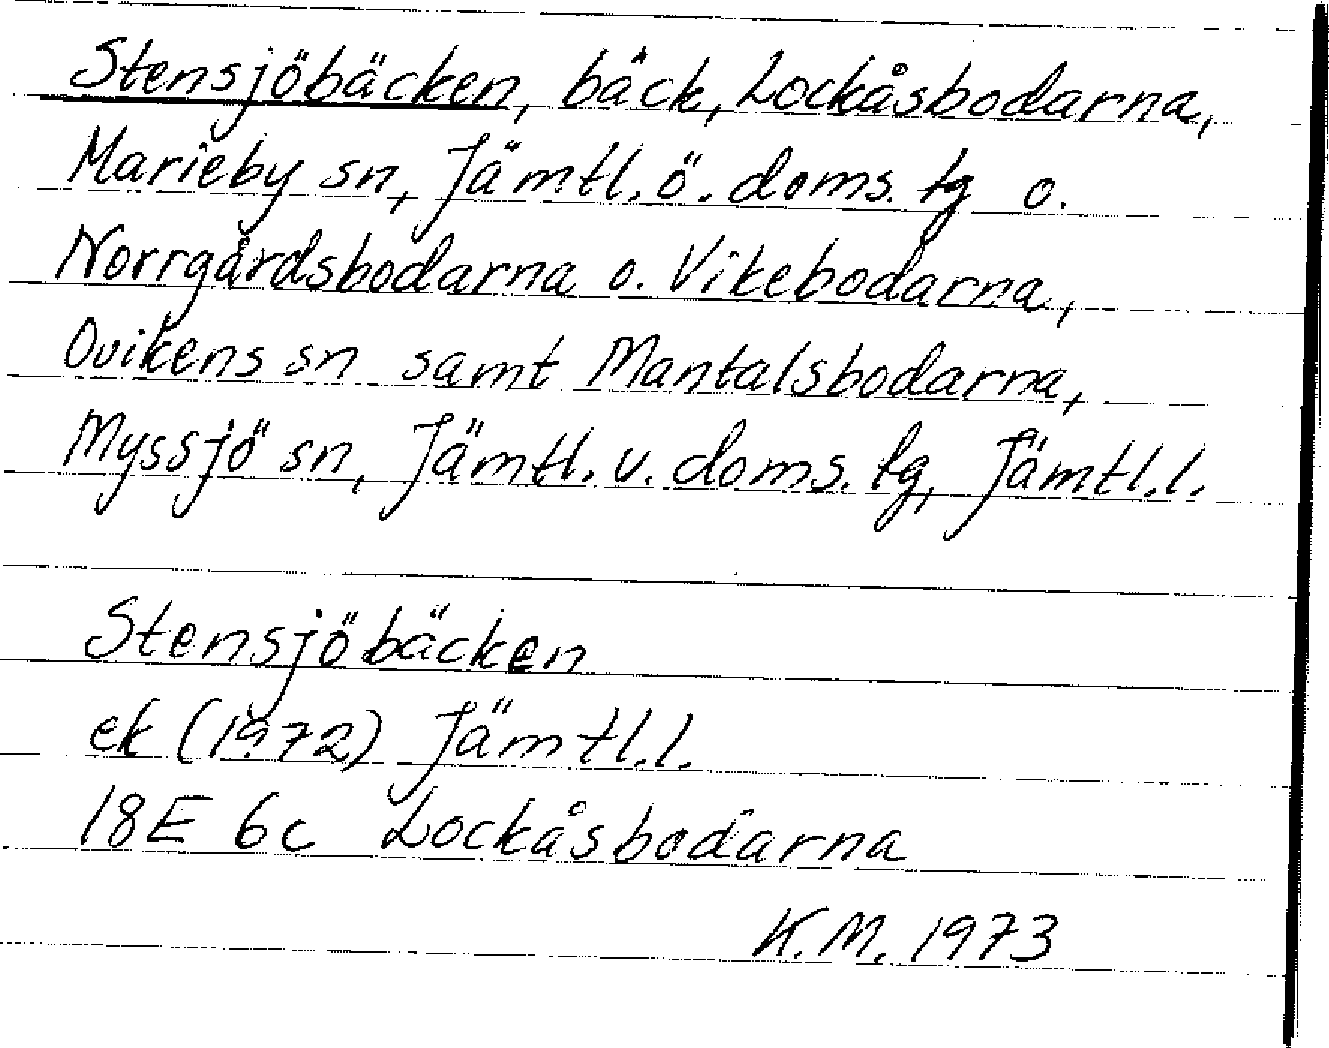 Stensjöbäcken, bäck, Lockåsbodarna,
Marieby sn, Jämtl. ö. doms. tg o.
Norrgårdsbodarna o. Vikebodarna,
Ovikens sn samt Mantalsbodarna,
Myssjö sn, Jämtl. v. doms. tg, Jämtl.l.
Stensjöbäcken
ek (1972) Jämtl.l.
18E 6c Lockåsbodarna
K.M. 1973